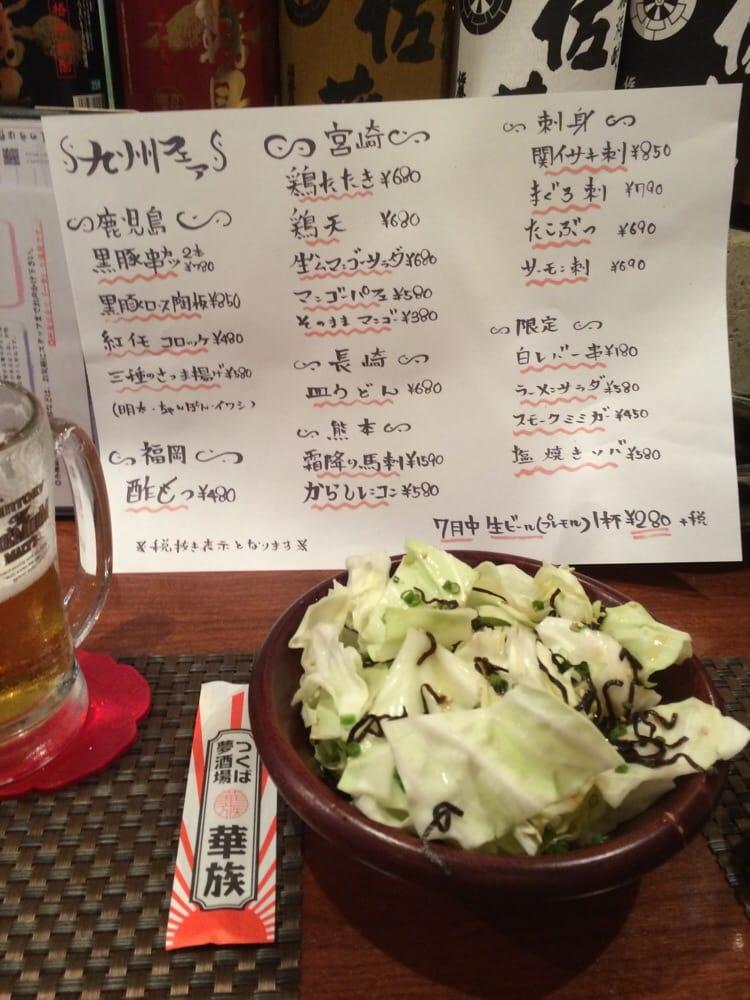 九州フェア
鹿児島
黒豚串カツ 2本 ¥780
黒豚ロース陶板 ¥850
紅イモコロッケ ¥480
三種のさつま揚げ ¥580
(明太・ちゃんぽん・イワシ)
福岡
酢もつ ¥480
※税抜き表示となります※
宮崎
鶏たたき ¥680
鶏天 ¥680
生ハムマンゴーサラダ ¥680
マンゴーパフェ ¥580
そのままマンゴー ¥380
長崎
皿うどん ¥680
熊本
霜降り馬刺 ¥1590
からしレンコン ¥580
刺身
関イサキ刺 ¥850
まぐろ刺 ¥790
たこぶつ ¥690
サーモン刺 ¥690
限定
白レバー串 ¥180
ラーメンサラダ ¥580
スモークミミガー ¥450
塩焼きソバ ¥580
7月中 生ビール(プレモル) 1杯 ¥280 +税
つくば
夢酒場
華族
SUNTORY
THE
PREMIUM
MALT'S
佐藤
佐